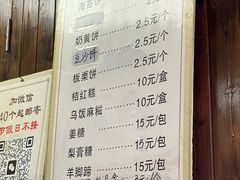 海苔饼
奶黄饼 2.5元/个
豆沙饼 2.5元/个
板栗饼 2.5元/个
桔红糕 10元/盒
乌饭麻糍 10元/盒
姜糖 15元/包
梨膏糖 15元/包
羊脚蹄 15元/包
加微信
40个起邮寄
节假日不接